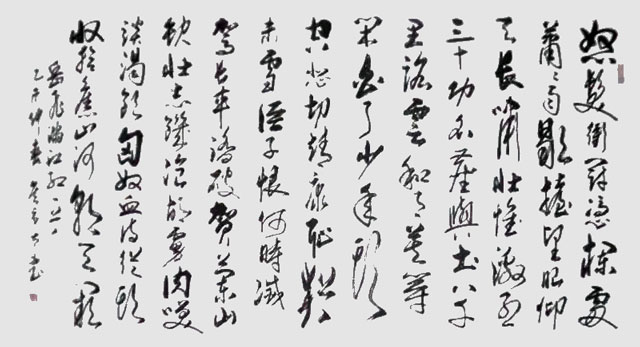 怒髮衝冠憑欄處
蕭蕭雨歇擡望眼仰
天長嘯壯懷激烈
三十功名塵與土八千
里路雲和月莫等
閑白了少年頭
空悲切靖康恥猶
未雪臣子恨何時滅
駕長車踏破賀蘭山
缺壯志饑飡胡虜肉笑
談渴飲匈奴血待從頭
收拾舊山河朝天闕
岳飛滿江紅
仲春 書